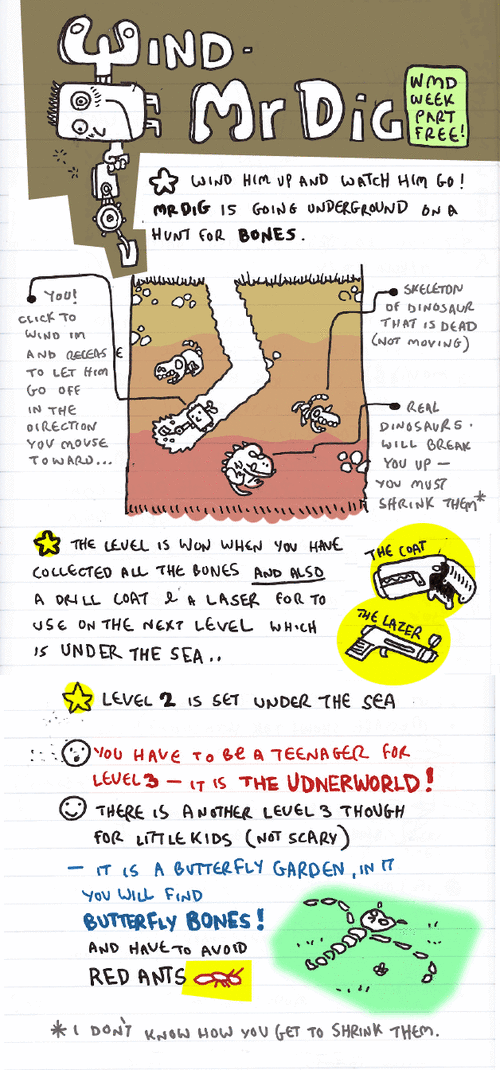 WIND-
Mr Dig
WMD
WEEK
PART
FREE!
WIND HIM UP AND WATCH HIM GO!
MR DIG IS GOING UNDERGROUND ON A
HUNT FOR BONES.
YOU!
CLICK TO
WIND IM
AND RELEAS E
TO LET HIM
GO OFF
IN THE
DIRECTION
YOU MOUSE
TOWARD...
SKELETON
OF DINOSAUR
THAT IS DEAD
(NOT MOVING)
REAL
DINOSAURS.
WILL BREAK
YOU UP —
YOU MUST
SHRINK THEM*
THE LEVEL IS WON WHEN YOU HAVE
COLLECTED ALL THE BONES AND ALSO
A DRILL COAT & A LASER FOR TO
USE ON THE NEXT LEVEL WHICH
IS UNDER THE SEA..
THE COAT
THE LAZER
LEVEL 2 IS SET UNDER THE SEA
YOU HAVE TO BE A TEENAGER FOR
LEVEL 3 — IT IS THE UDNERWORLD!
THERE IS ANOTHER LEVEL 3 THOUGH
FOR LITTLE KIDS (NOT SCARY)
— IT IS A BUTTERFLY GARDEN, IN IT
YOU WILL FIND
BUTTERFLY BONES!
AND HAVE TO AVOID
RED ANTS
* I DON'T KNOW HOW YOU GET TO SHRINK THEM.